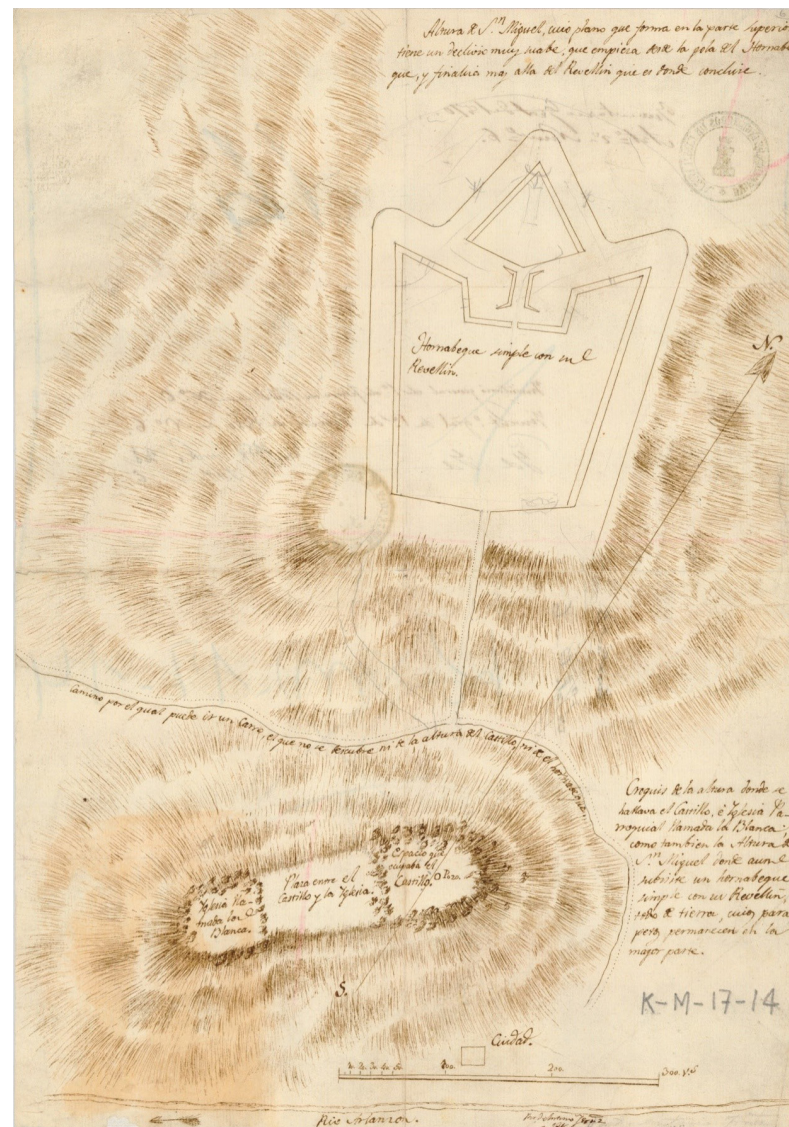 Altura de S.n Miguel, cuio plano que forma en la parte superio
tiene un declivio muy suabe, que empieza desde la gola del Hornabe
que, y finaliza mas alla del Revellin que es donde concluie.
Hornabeque simple con su
Revellin.
N.
Camino por el qual puede ir un Carro, el que no se descubre ni de la altura del Castillo, ni de el hornabeque.
Croquis de la altura donde se
hallava el Castillo, è Yglesia Pa-
rroquial llamada la Blanca;
como tambien la Altura de
S.n Miguel donde aun
subsiste un hornabeque
simple con su Revellin,
todo de tierra, cuios para
petos permanecen en la
mayor parte.
Espacio que
ocupaba el
Castillo.
Pozo
Plaza entre el
Castillo y la Yglesia.
Yglesia lla-
mada la
Blanca.
S.
K-M-17-14
Ciudad.
100. 200. 300. v.s
Rio Arlanzon.